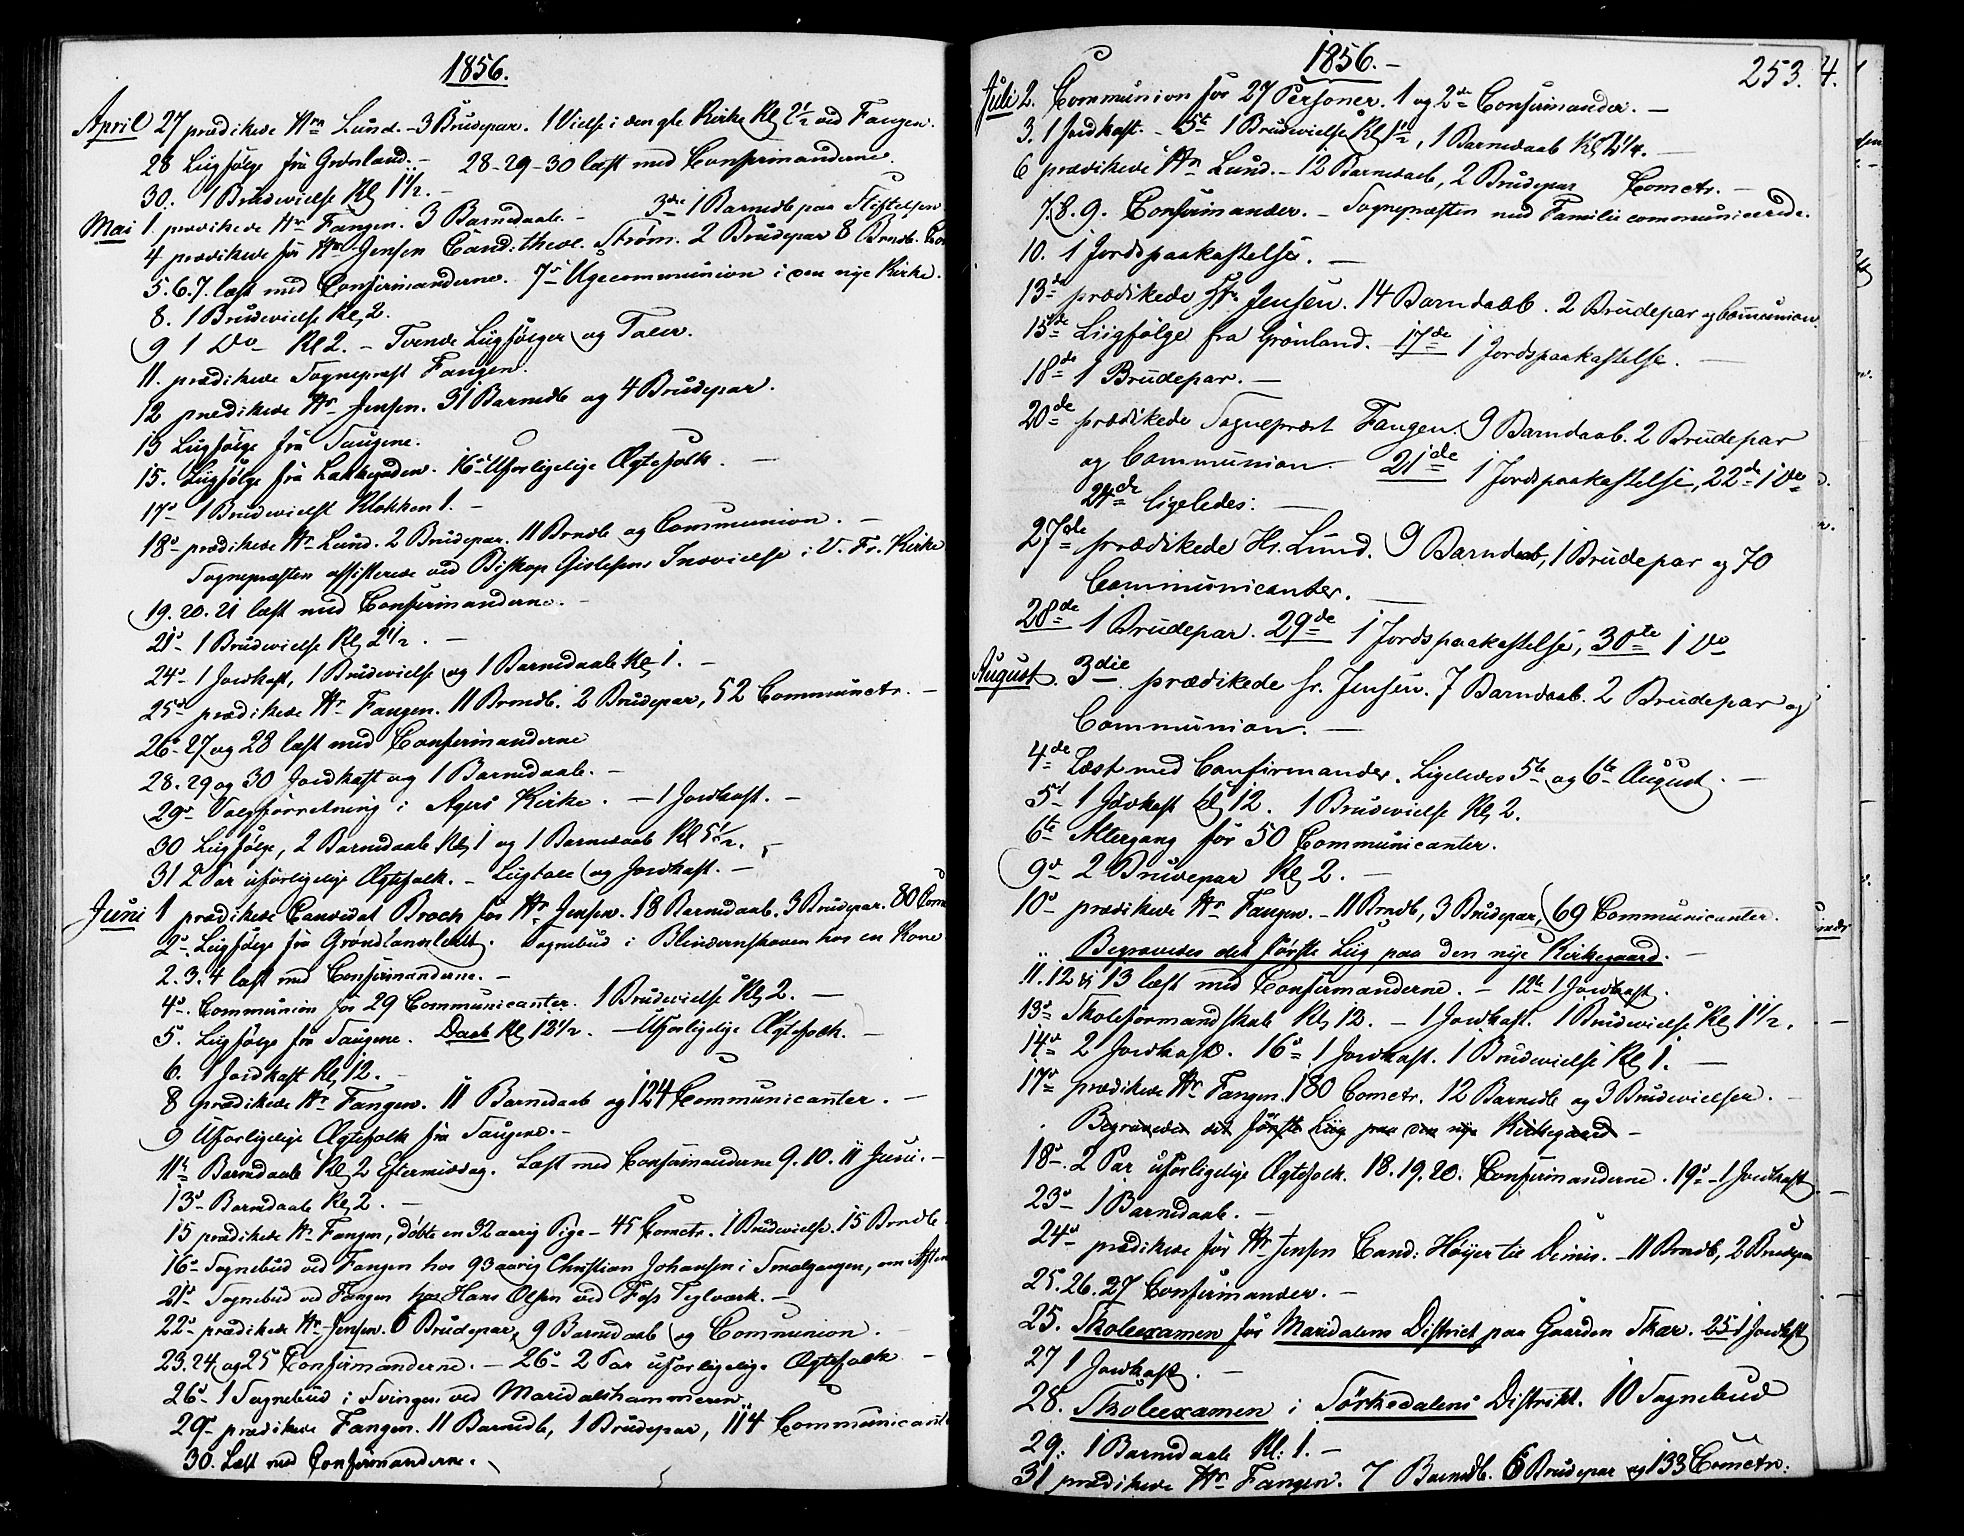 1856.
April 27 prædikede Hr Lund. - 3 Brudepar. 1 Vielse i den gle Kirke Kl 2½ ved Fangen.
28 Liigfølge fra Grønland. - 28-29-30 læst med Confirmanderne.
30. 1 Brudevielse Kl 1½. -
Mai 1. prædikede Hr Fangen. 3 Barnedaab. - 3die 1 Barnedb paa Stiftelsen
4 prædikede for Hr Jensen Cand: theol. Strøm. 2 Brudepar 8 Brndb.
5. 6. 7. læst med Confirmanderne. 7de Ugecommunion i den nye Kirke.
8. 1 Brudevielse Kl 2.
9 1 Do Kl 2. - Tvende Liigfølger og Taler.
11. prædikede Sognepræst Fangen.
12 prædikede Hr Jensen. 31 Barnedb og 4 Brudepar.
13 Liigfølge fra Saugene.
15. Liigfølge fra Lakkegaden. 16de Uforligelige Ægtefolk. -
17de 1 Brudevielse Klokken 1. -
18de prædikede Hr Lund. 2 Brudepar. 11 Brndb og Communion. -
Sognepræsten assisterede ved Biskop Gislesens Indvielse i V. Fr. Kirke
19. 20. 21 læst med Confirmanderne. -
21de 1 Brudevielse Kl 2½. -
24de 1 Jordkast, 1 Brudevielse og 1 Barnedaab Kl 1. -
25de prædikede Hr Fangen. 11 Brndb. 2 Brudepar, 52 Communctr. -
26-27 og 28 læst med Confirmanderne
28. 29 og 30 Jordkast og 1 Barnedaab. -
29de Valgforretning i Agers Kirke. - 1 Jordkast. -
30 Liigfølge, 2 Barnedaab Kl 1 og 1 Barnedaab Kl 5½.
31 2 Par uforligelige Ægtefolk. - Liigtale og Jordkast. -
Juni 1 prædikede Candidat Broch for Hr Jensen. 18 Barnedaab. 3 Brudepar. 80
2de Liigfølge fra Grønlandsleret. Sognebud i Blindernshaven hos en Kone
2. 3. 4 læst med Confirmanderne. -
4de Communion for 29 Communicanter. 1 Brudevielse Kl 2. -
5. Liigfølge fra Saugene. Daab Kl 12½. - Uforligelige Ægtefolk. -
6. 1 Jordkast Kl 12. -
8 prædikede Hr Fangen. 11 Barnedaab og 124 Communicanter. -
9 Uforligelige Ægtefolk fra Saugene. -
11te Barnedaab Kl 2 Eftermiddag. Læst med Confirmanderne 9. 10. 11 Juni. -
13de Barnedaab Kl 2. -
15 prædikede Hr Fangen, døbte en 32 aarig Pige - 45 Comctr. 1 Brudevielse. 15 Brndb
16de Sognebud ved Fangen hos 93 aarig Christian Johansen i Smalgangen, om Aften
21de Sognebud ved Fangen hos Hans Olsen ved Foss Teglværk. -
22de prædikede Hr Jensen. 6 Brudepar, 9 Barnedaab og Communion. -
23. 24 og 25 Confirmanderne. - 26de 2 Par uforligelige Ægtefolk -
26de 1 Sognebud i Svingen ved Maridalshammeren.
29de prædikede Fangen. 11 Barnedb, 1 Brudepar, 114 Communicant
30. Læst med Confirmanderne.
1856. -
253.
4.
Juli 2. Communion for 27 Personer. 1 og 2de Confirmander. -
3. 1 Jordkast. - 5te 1 Brudevielse Kl 1½, 1 Barnedaab Kl -
6 prædikede Hr Lund. - 12 Barnedaab, 2 Brudepar Comctr. -
7. 8. 9. Confirmander. - Sognepræsten med Familie communicerede.
10. 1 Jordspaakastelse. -
13de prædikede Hr. Jensen. 14 Barndaab. 2 Brudepar og Communion.
15de Liigfølge fra Grønland. 17de 1 Jordspaakastelse. -
18de 1 Brudepar. -
20de prædikede Sognepræst Fangen. 9 Barndaab. 2 Brudepar
og Communion. 21de 1 Jordspaakastelse, 22de 1 Do
24de ligeledes: -
27de prædikede Hr. Lund. 9 Barndaab, 1 Brudepar og 70
Communicanter. -
28de 1 Brudepar. 29de 1 Jordspaakastelse, 30te 1 Do
August. 3die prædikede Hr. Jensen. 7 Barndaab. 2 Brudepar og
Communion. -
4de Læst med Confirmander. Ligeledes 5te og 6te August. -
5te 1 Jordkast Kl 12. 1 Brudevielse Kl 2.
6te Altergang for 50 Communicanter.
9de 2 Brudepar Kl 2. -
10de prædikede Hr Fangen. - 11 Brndb, 3 Brudepar, 69 Communicanter.
" Begravedes det første Liig paa den nye Kirkegaard. -
11. 12 & 13 læst med Confirmanderne. - 12te 1 Jordkast.
13de Skoleformandskab Kl 12. - 1 Jordkast. 1 Brudevielse Kl 1½. -
14de 2 Jordkast. 16de 1 Jordkast. 1 Brudevielse Kl 1. -
17de prædikede Hr Fangen. 180 Comctr. 12 Barnedb og 3 Brudevielser. -
Begravedes det første Liig paa den nye Kirkegaard -
18de 2 Par uforligelige Ægtefolk. 18. 19. 20. Confirmanderne. 19de 1 Jordkast. -
23de 1 Barnedaab. -
24de prædikede for Hr Jensen Cand: Høyer til Dimis. - 11 Brndb, 2 Brudepar
25. 26. 27 Confirmander. -
25. Skoleexamen for Maridalens District paa Gaarden Skar. 25 1 Jordkast
27 1 Jordkast. -
28. Skoleexamen i Sørkedalens Distrikt. 10 Sognebud
29: 1 Barnedaab Kl: 1. -
31 prædikede Hr Fangen. 7 Barnedb. 6 Brudepar og 133 Comctr: